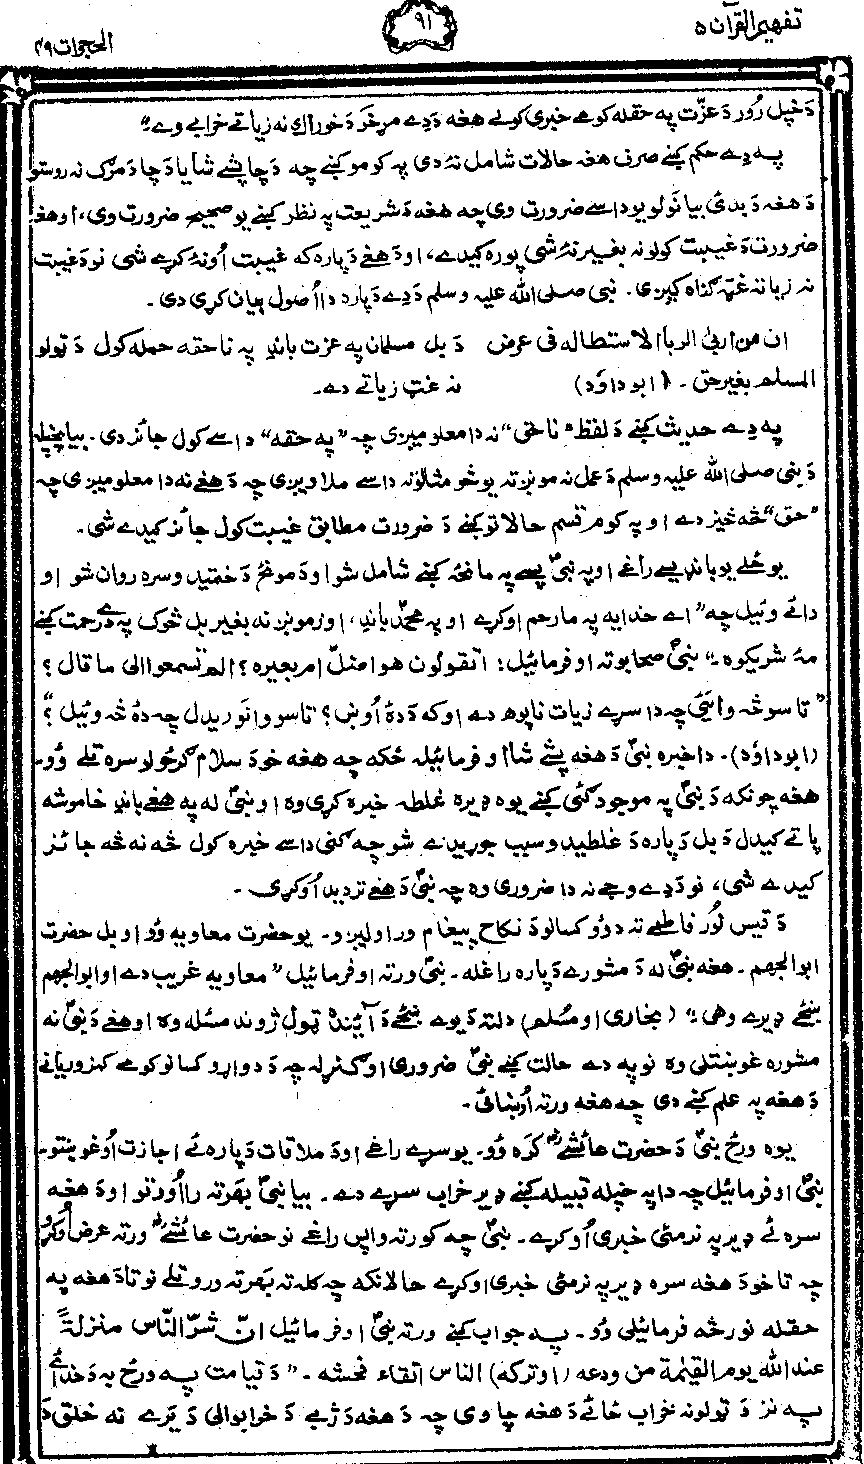 تفهیم القرآن ۵
۹۱
الحجرات ۴۹
دَخپل رُور دَ عزّت په حقله کومے خبرې کولے هغه دَدے مړغَو دَخوراک نه زیاتے خرابے وے؛
په دے حکم کښے صرف هغه حالات شامل نۀ دی په کومو کښے چه دَچا پشے شا یا دَچا دَمرګ نه روستو
دَ هغه دَ بدئ بیانَولو یو داسے ضرورت وی چه هغه دَ شریعت په نظر کښے یو صحیح ضرورت وی، او هغه
ضرورت دَ غیبت کولو نه بغیر نۀ شی پوره کیدے، او دَ هغے دَپاره که غیبت اُونۀ کړے شی نو دَ غیبت
نه زیاته غټه ګناه کیږی. نبی صلی الله علیه وسلم دَدے دَپاره دا اُصول بیان کړی دی.
ان من اربی الربا الاستطاله فی عرض دَ بل مسلمان په عزت باندِ په ناحقه حمله کول دَ ټولو
المسلم بغیر حق. (ابوداوُد) نه غټ زیاتے دے.
په دے حدیث کښے دَ لفظ "ناحق" نه دا معلومیږی چه "په حقه" داسے کول جائز دی. بیا پخپله
دَ نبی صلی الله علیه وسلم دَ عمل نه مونږ ته یو څو مثالونه داسے ملاویږی چه دَ هغے نه دا معلومیږی چه
"حق" څه څیز دے او په کوم قسم حالاتو کښے دَ ضرورت مطابق غیبت کول جائز کیدے شی.
یو ځلے یو بانډیسے راغے او په نبیؐ پسے په مانځه کښے شامل شو او دَ مونځ دَ ختمیدو سره روان شو او
دائے وئیل چه "اے خدایه په ما رحم اوکړے او په محمدؐ باندِ، او زمونږ نه بغیر بل څوک په دے رحمت کښے
مۀ شریکوه." نبیؐ صحابو ته اوفرمائیل: اتقولون هو اضلّ ام بعیره؟ الم تسمعوا الی ما قال؟
"تاسو څه وایئ چه دا سړے زیات ناپوهه دے او که دَدۀ اُوښ؟ تاسو وانَوریدل چه دۀ څه وئیل؟"
(ابوداوُد). دا خبره نبیؐ دَ هغه پشے شا اوفرمائیله ځکه چه هغه خو دَ سلام ګرځولو سره تلے وُو.
هغه چونکه دَ نبیؐ په موجودګئ کښے یوه ډیره غلطه خبره کړی وه او نبیؐ له په هغے باندِ خاموشه
پاتے کیدل دَ بل دَپاره دَ غلطیدو سبب جوړیدے شو چه ګنی داسے خبره کول څه نه څه جائز
کیدے شی، نو دَدے وجے نه دا ضروری وه چه نبیؐ دَ هغے تردید اُوکړی.
دَ قیس لُور فاطمے ته دوو کسانو دَ نکاح پیغام ور اولیږو. یو حضرت معاویه وُو او بل حضرت
ابوالجهم. هغه نبیؐ له دَ مشورے دَپاره راغله. نبیؐ ورته اوفرمائیل "معاویه غریب دے او ابوالجهم
ښځے ډیرے وهی؛" (بخاری او مُسلم) دلته دَ یوے ښځے دَ آئینده ټول ژوند مسئله وه او هغے دَ نبیؐ نه
مشوره غوښتلی وه نو په دے حالت کښے نبیؐ ضروری اوګنړله چه دَ دواړو کسانو کومے کمزوریانے
دَ هغه په علم کښے دی چه هغه ورته اُوښائی.
یوه ورځ نبیؐ دَ حضرت عائشےؓ کره وُو. یو سړے راغے او دَ ملاقات دَپاره ئے اجازت اُوغوښتو.
نبیؐ اوفرمائیل چه دا په خپله قبیله کښے ډیر خراب سړے دے. بیا نبیؐ بهر ته رااُووتو او دَ هغه
سره ئے ډیر په نرمئ خبری اُوکړے. نبیؐ چه کور ته واپس راغے نو حضرت عائشےؓ ورته عرض اُوکړو
چه تا خو دَ هغه سره ډیر په نرمئ خبری اوکړے حالانکه چه کله ته بهر ته وروتلے نو تا دَ هغه په
حقله نور څه فرمائیلی وُو. په جواب کښے ورته نبیؐ اوفرمائیل انّ شرّ النّاس منزلةً
عند الله یوم القیٰمة من ودعه (او ترکه) الناس اتقاء فحشه. "دَ قیامت په ورځ به دَ خدائے
په نزد دَ ټولو نه خراب ځائے دَ هغه چا وی چه دَ هغه دَ ژبے دَ خرابوالی دَ یَرے نه خلق دَ